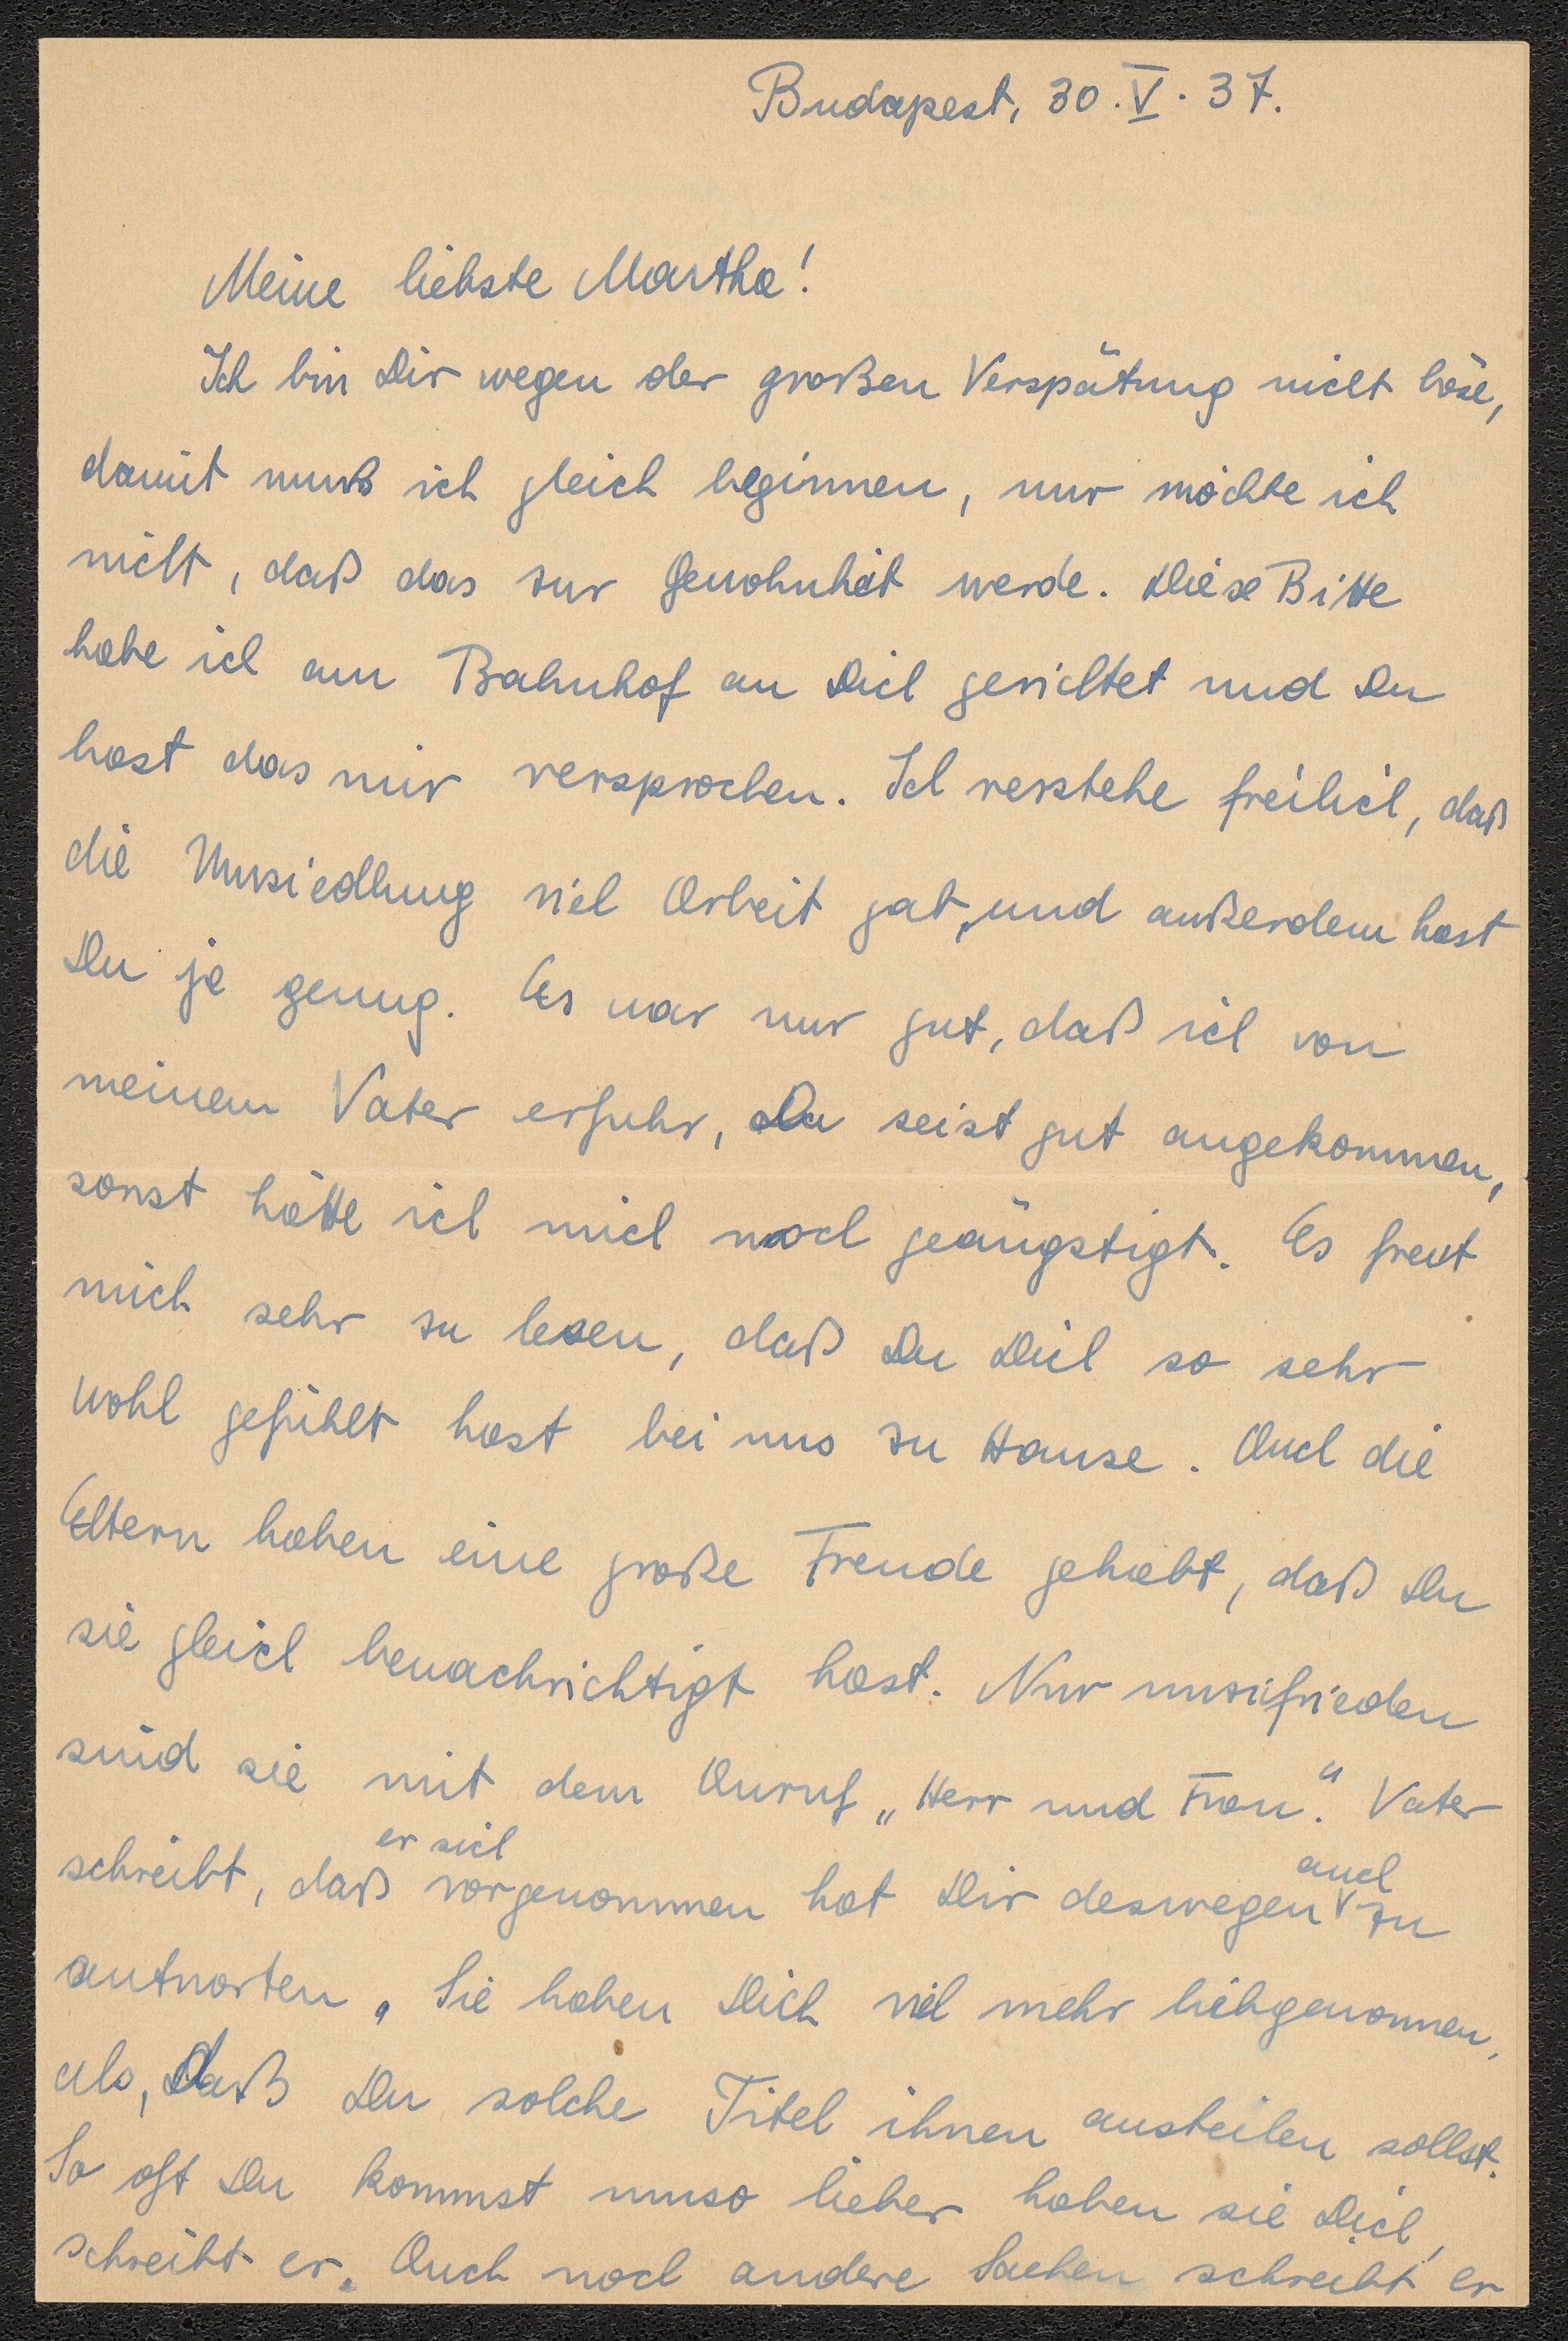 Budapest, 30.V.37.
Meine liebste Martha!
Ich bin Dir wegen der großen Verspätung nicht böse,
damit muß ich gleich beginnen, nur möchte ich
nicht, daß das zur Gewohnheit werde. Diese Bitte
habe ich am Bahnhof an Dich gerichtet und Du
hast das mir versprochen. Ich verstehe freilich, daß
die Umsiedlung viel Arbeit gab, und außerdem hast
Du ja genug. Es war nur gut, daß ich von
meinem Vater erfuhr, Du seist gut angekommen,
sonst hätte ich mich noch geängstigt. Es freut
mich sehr zu lesen, daß Du Dich so sehr
wohl gefühlt hast bei uns zu Hause. Auch die
Eltern haben eine große Freude gehabt, daß Du
sie gleich benachrichtigt hast. Nur unzufrieden
sind sie mit dem Anruf „Herr und Frau“. Vater
schreibt, daß er sich vorgenommen hat Dir deswegen auch zu
antworten. Sie haben Dich viel mehr liebgenommen,
als, daß Du solche Titel ihnen austeilen sollst.
So oft Du kommst umso lieber haben sie Dich,
schreibt er. Auch noch andere Sachen schreibt er